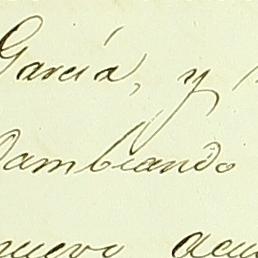 García, y
cambiando
nuevo